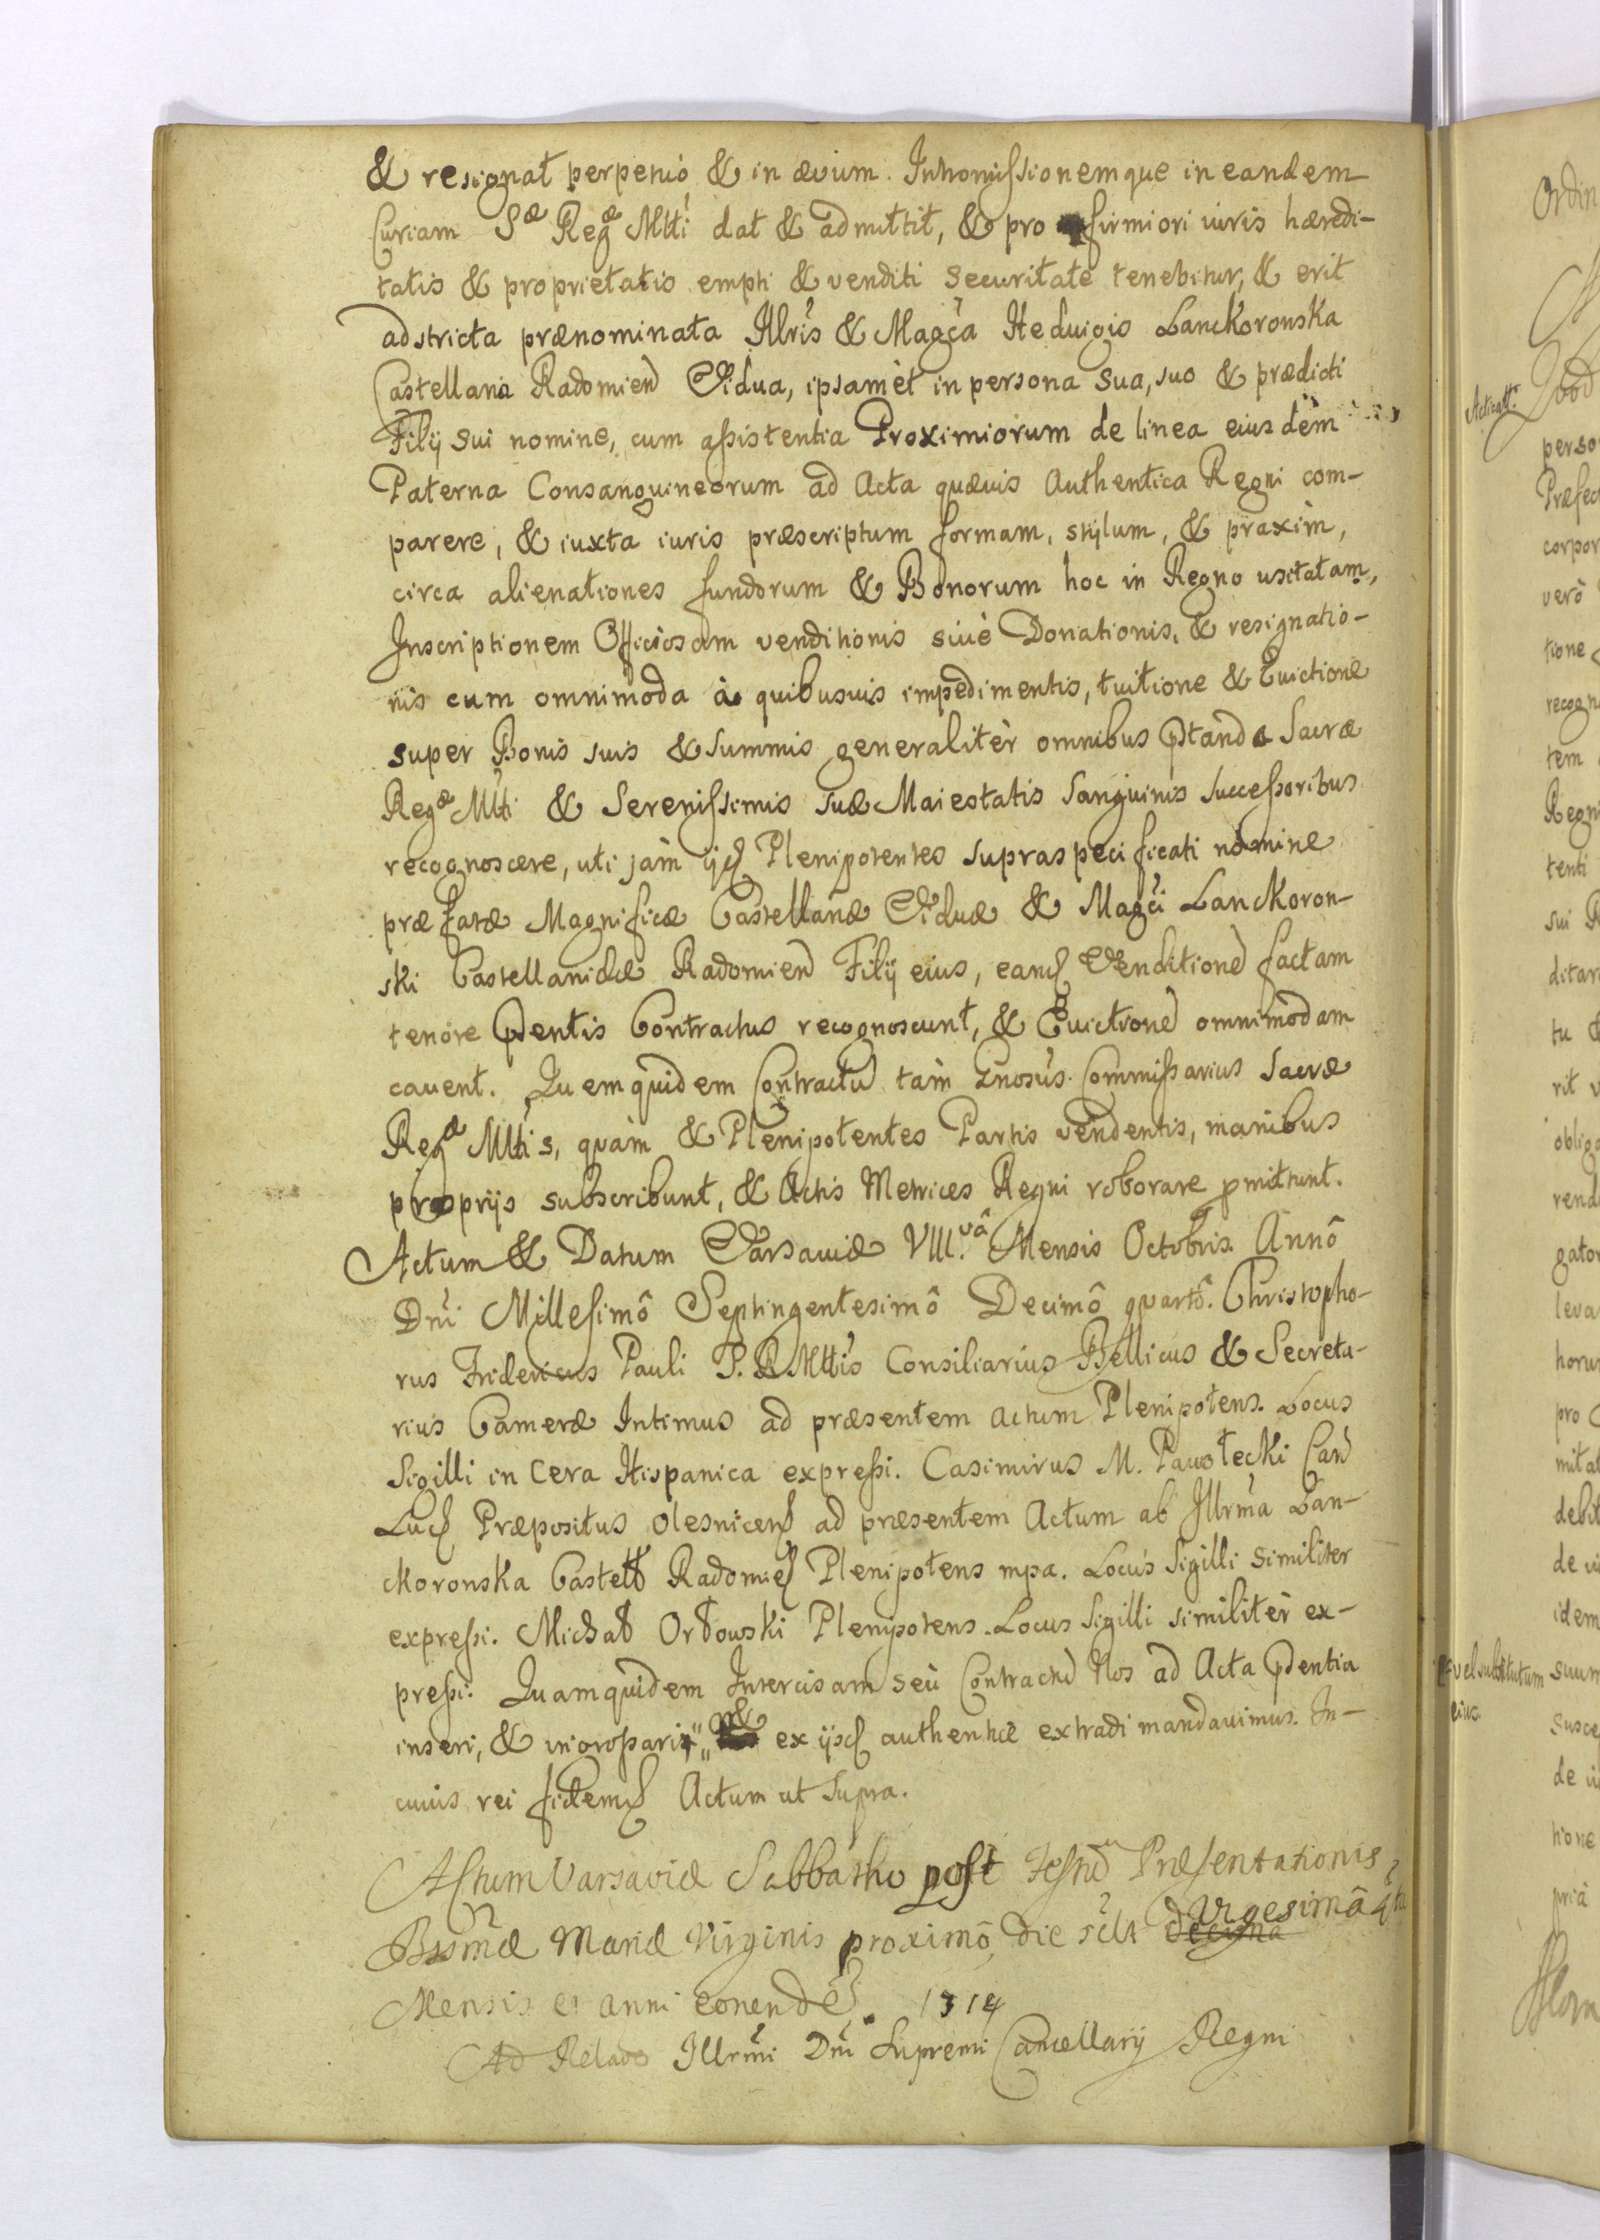 & resignat perpetuò & in ævum. Intromissionemque in eandem
Curiam Sæ Regæ Mtti dat & admittit, & pro firmiori iuris hæredi-
tatis & proprietatis empti & venditi securitate tenebitur, & erit
adstricta prænominata Illris & Magca Heduigis Lanckoronska
Castellana Radomien Vidua, ipsamèt in persona sua, suo & prædicti
Filij sui nomine, cum assistentia Proximiorum de linea eiusdem
Paterna Consanguineorum ad Acta quævis Authentica Regni com-
parere, & iuxta iuris præscriptum formam, stylum, & praxim,
circa alienationes fundorum & Bonorum hoc in Regno usitatam,
Inscriptionem Officiosam venditionis sivè Donationis, & resignatio-
nis cum omnimoda à quibusuis impedimentis, tuitione & Evictione
super Bonis suis & summis generalitèr omnibus pstanda Sacræ
Regæ Mtti & Serenissimis suæ Maiestatis Sanguinis Successoribus
recognoscere, uti jàm ijd Plenipotentes supraspecificati nomine
præfatæ Magnificæ Castellanæ Viduæ & Magci Lanckoron-
ski Castellanidæ Radomien Filij eius, eand Venditione factam
tenore pdentis Contractus recognoscunt, & Evictione omnimodam
cauent. Quemquidem Contractu tàm Gnosus Commissarius Sacræ
Regæ Mttis, quàm & Plenipotentes Partis vendentis, manibus
proprijs subscribunt, & Actis Metrices Regni roborare pmittunt.
Actum & Datum Varsaviæ VIII.vâ Mensis Octobris Annô
Dni Millesimô Septingentesimô Decimô quartô. Christopho-
rus Fridericus Pauli S. R Mttis Consiliarius Bellicus & Secreta-
rius Cameræ Intimus ad præsentem actum Plenipotens. Locus
Sigilli in Cera Hispanica expressi. Casimirus M. Pawołecki Can
Luc Præpositus Olesnicen ad præsentem Actum ab Illrma Lan-
ckoronska Castell Radomien Plenipotens mpa. Locus Sigilli similiter
expressi. Michał Orłowski Plenipotens. Locus Sigilli similitèr ex-
pressi. Quamquidem Intercisam seù Contractu Nos ad Acta pdentia
inseri, & inorossari, & ex ijsd authenticè extradi mandavimus. In-
cuius rei fidem Actum ut supra.
Actum Varsaviæ Sabbatho post Festu Præsentationis
Bssmæ Mariæ Virginis proximô, die sclt decima Vigesimâ 4ta
Mensis et anni eorund. 1714
Ad Relao Illrmi Dni Supremi Cancellarij Regni
Ordin
Acticatt.
perso
Præfec
corpor
verò
tione
recogn
tem
Regni
tenti
sui R
ditar
tu &
rit v
oblig
rend
gator
leva
horu
pro
mitat
debit
de
idem
vel substitutum
eius.
suum
susce
de
tione
pria